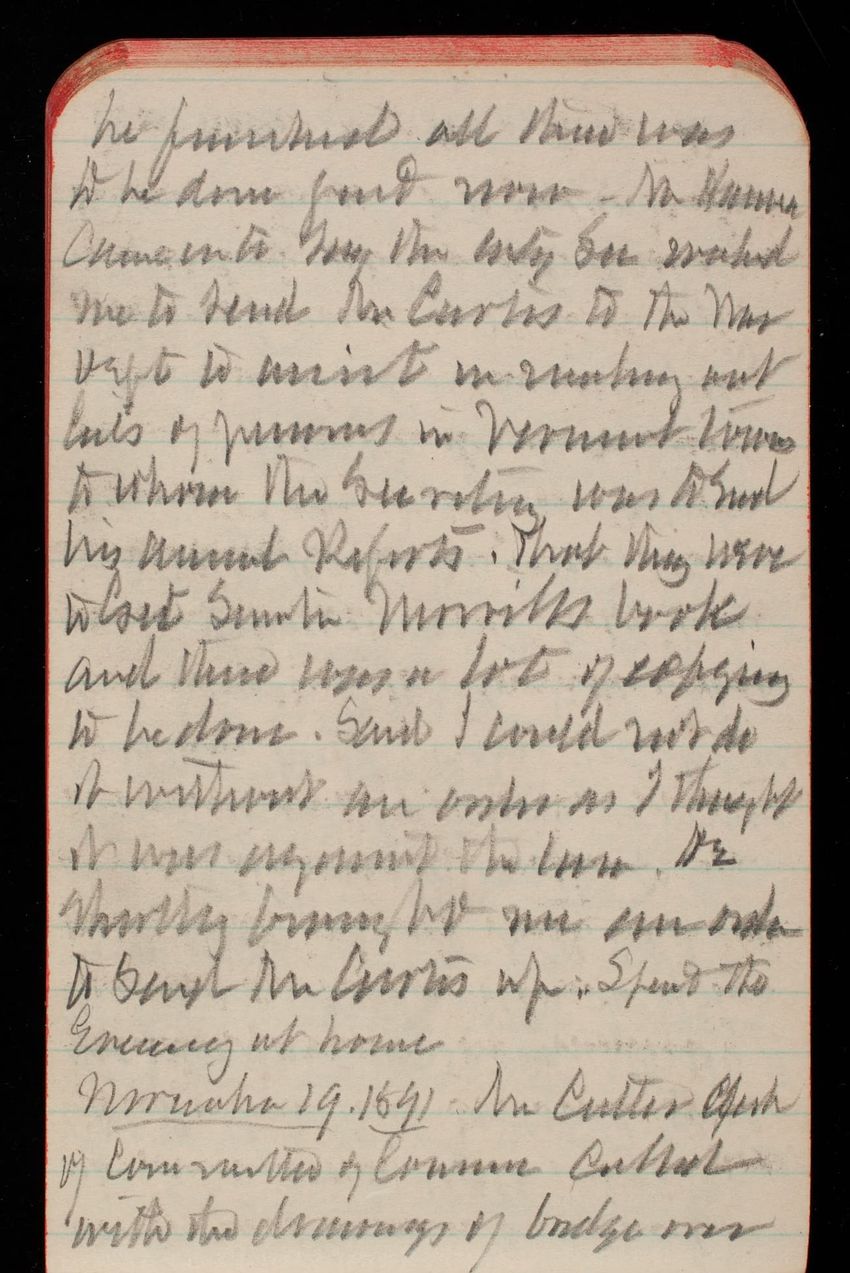 he furnished all there was
to be done just now - Mr Hanna
Came in to say the Secty
me to send Mr Curtis to the War
Dept to assist in making out
lists of persons in Vermont towns
to whom the Secretary was to send
his annual Reports. That they were
to get Senator Morrills book
and there was a lot of copying
to be done. Said I could not do
it without an order as I thought
it was against the law. He
Shortly brought me an order
to Send Mr Curtis up. Spent the
Evening at home
November 19. 1891 Mr Cutter Clerk
of Committee of Commerce Called
with the drawings of bridge over